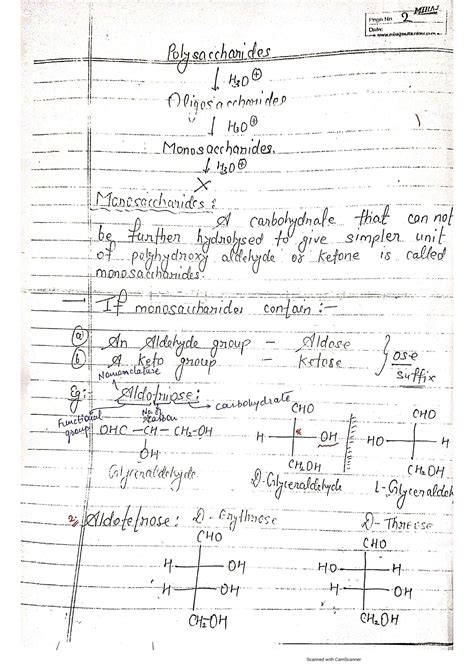 MIRAJ
Page No 2
Date:
Polysaccharides
↓ H₃O⊕
Oligosaccharides
↓ H₃O⊕
Monosaccharides.
↓ H₃O⊕
X
Monosaccharides :
A carbohydrate that can not
be further hydrolysed to give simpler unit
of polyhydroxy aldehyde or ketone is called
monosaccharides.
→ If monosaccharides contain :-
(a) An Aldehyde group - Aldose
(b) A keto group - Ketose } ose suffix
Nomenclature
Eg: Aldotriose:
Functional group
No. of carbon
carbohydrate
OHC - CH - CH₂-OH
OH
Glyceraldehyde
CHO
H OH
CH₂OH
D-Glyceraldehyde
CHO
HO
CH₂OH
L-Glyceraldeh
2, Aldotetrose: D- Erythrose D- Threose
CHO CHO
H OH HO H
H OH H OH
CH₂OH CH₂OH
Scanned with CamScanner